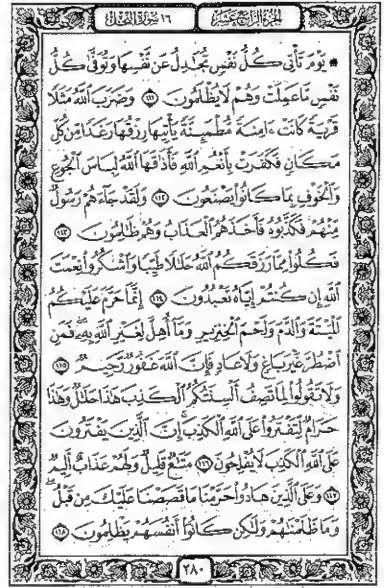 الجزء الرابع عشر ١٦ سورة النحل
۞ يَوْمَ تَأْتِى كُلُّ نَفْسٍ تُجَٰدِلُ عَن نَّفْسِهَا وَتُوَفَّىٰ كُلُّ
نَفْسٍ مَّا عَمِلَتْ وَهُمْ لَا يُظْلَمُونَ ١١١ وَضَرَبَ ٱللَّهُ مَثَلًا
قَرْيَةً كَانَتْ ءَامِنَةً مُّطْمَئِنَّةً يَأْتِيهَا رِزْقُهَا رَغَدًا مِّن كُلِّ
مَكَانٍ فَكَفَرَتْ بِأَنْعُمِ ٱللَّهِ فَأَذَٰقَهَا ٱللَّهُ لِبَاسَ ٱلْجُوعِ
وَٱلْخَوْفِ بِمَا كَانُوا۟ يَصْنَعُونَ ١١٢ وَلَقَدْ جَآءَهُمْ رَسُولٌ
مِّنْهُمْ فَكَذَّبُوهُ فَأَخَذَهُمُ ٱلْعَذَابُ وَهُمْ ظَٰلِمُونَ ١١٣
فَكُلُوا۟ مِمَّا رَزَقَكُمُ ٱللَّهُ حَلَٰلًا طَيِّبًا وَٱشْكُرُوا۟ نِعْمَتَ
ٱللَّهِ إِن كُنتُمْ إِيَّاهُ تَعْبُدُونَ ١١٤ إِنَّمَا حَرَّمَ عَلَيْكُمُ
ٱلْمَيْتَةَ وَٱلدَّمَ وَلَحْمَ ٱلْخِنزِيرِ وَمَآ أُهِلَّ لِغَيْرِ ٱللَّهِ بِهِۦ فَمَنِ
ٱضْطُرَّ غَيْرَ بَاغٍ وَلَا عَادٍ فَإِنَّ ٱللَّهَ غَفُورٌ رَّحِيمٌ ١١٥
وَلَا تَقُولُوا۟ لِمَا تَصِفُ أَلْسِنَتُكُمُ ٱلْكَذِبَ هَٰذَا حَلَٰلٌ وَهَٰذَا
حَرَامٌ لِّتَفْتَرُوا۟ عَلَى ٱللَّهِ ٱلْكَذِبَ إِنَّ ٱلَّذِينَ يَفْتَرُونَ
عَلَى ٱللَّهِ ٱلْكَذِبَ لَا يُفْلِحُونَ ١١٦ مَتَٰعٌ قَلِيلٌ وَلَهُمْ عَذَابٌ أَلِيمٌ
١١٧ وَعَلَى ٱلَّذِينَ هَادُوا۟ حَرَّمْنَا مَا قَصَصْنَا عَلَيْكَ مِن قَبْلُ
وَمَا ظَلَمْنَٰهُمْ وَلَٰكِن كَانُوٓا۟ أَنفُسَهُمْ يَظْلِمُونَ ١١٨
٢٨٠